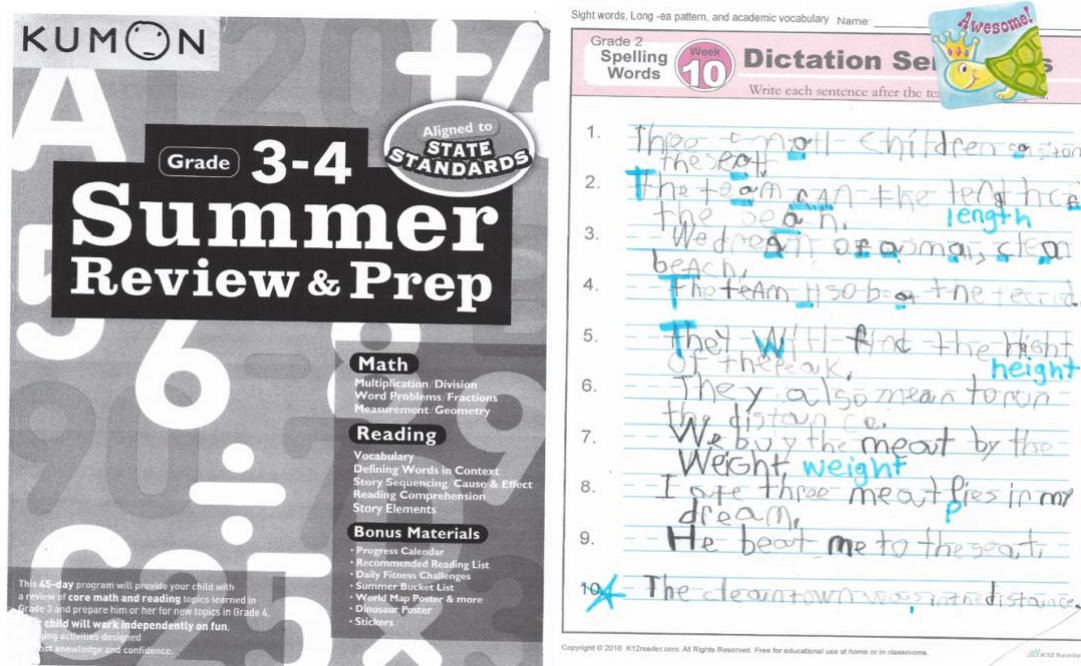 KUMON
Grade 3-4
Aligned to
STATE
STANDARDS
Summer
Review & Prep
Math
Multiplication/Division
Word Problems/Fractions
Measurement/Geometry
Reading
Vocabulary
Defining Words in Context
Story Sequencing/Cause & Effect
Reading Comprehension
Story Elements
Bonus Materials
• Progress Calendar
• Recommended Reading List
• Daily Fitness Challenges
• Summer Bucket List
• World Map Poster & more
• Dinosaur Poster
• Stickers
This 45-day program will provide your child with
a review of core math and reading topics learned in
Grade 3 and prepare him or her for new topics in Grade 4.
child will work independently on fun,
activities designed
knowledge and confidence.
Sight words, Long -ea pattern, and academic vocabulary Name:
Awesome!
Grade 2
Spelling
Words
Week
10
Dictation
Write each sentence after the
1. Three small children
the seat
2. The team can the
the beach.
length
3. We dream of a small, clean
beach.
4. The team also
5. They will find the hight
of the peak.
height
6. They also mean to run
the distance.
7. We buy the meat by the
Weight weight
8. I ate three meat pies in my
p
dream.
9. He beat me to the seat.
10. The clean town was in the distance.
Copyright © 2016 K12reader.com. All Rights Reserved. Free for educational use at home or in classrooms.
K12 Reader